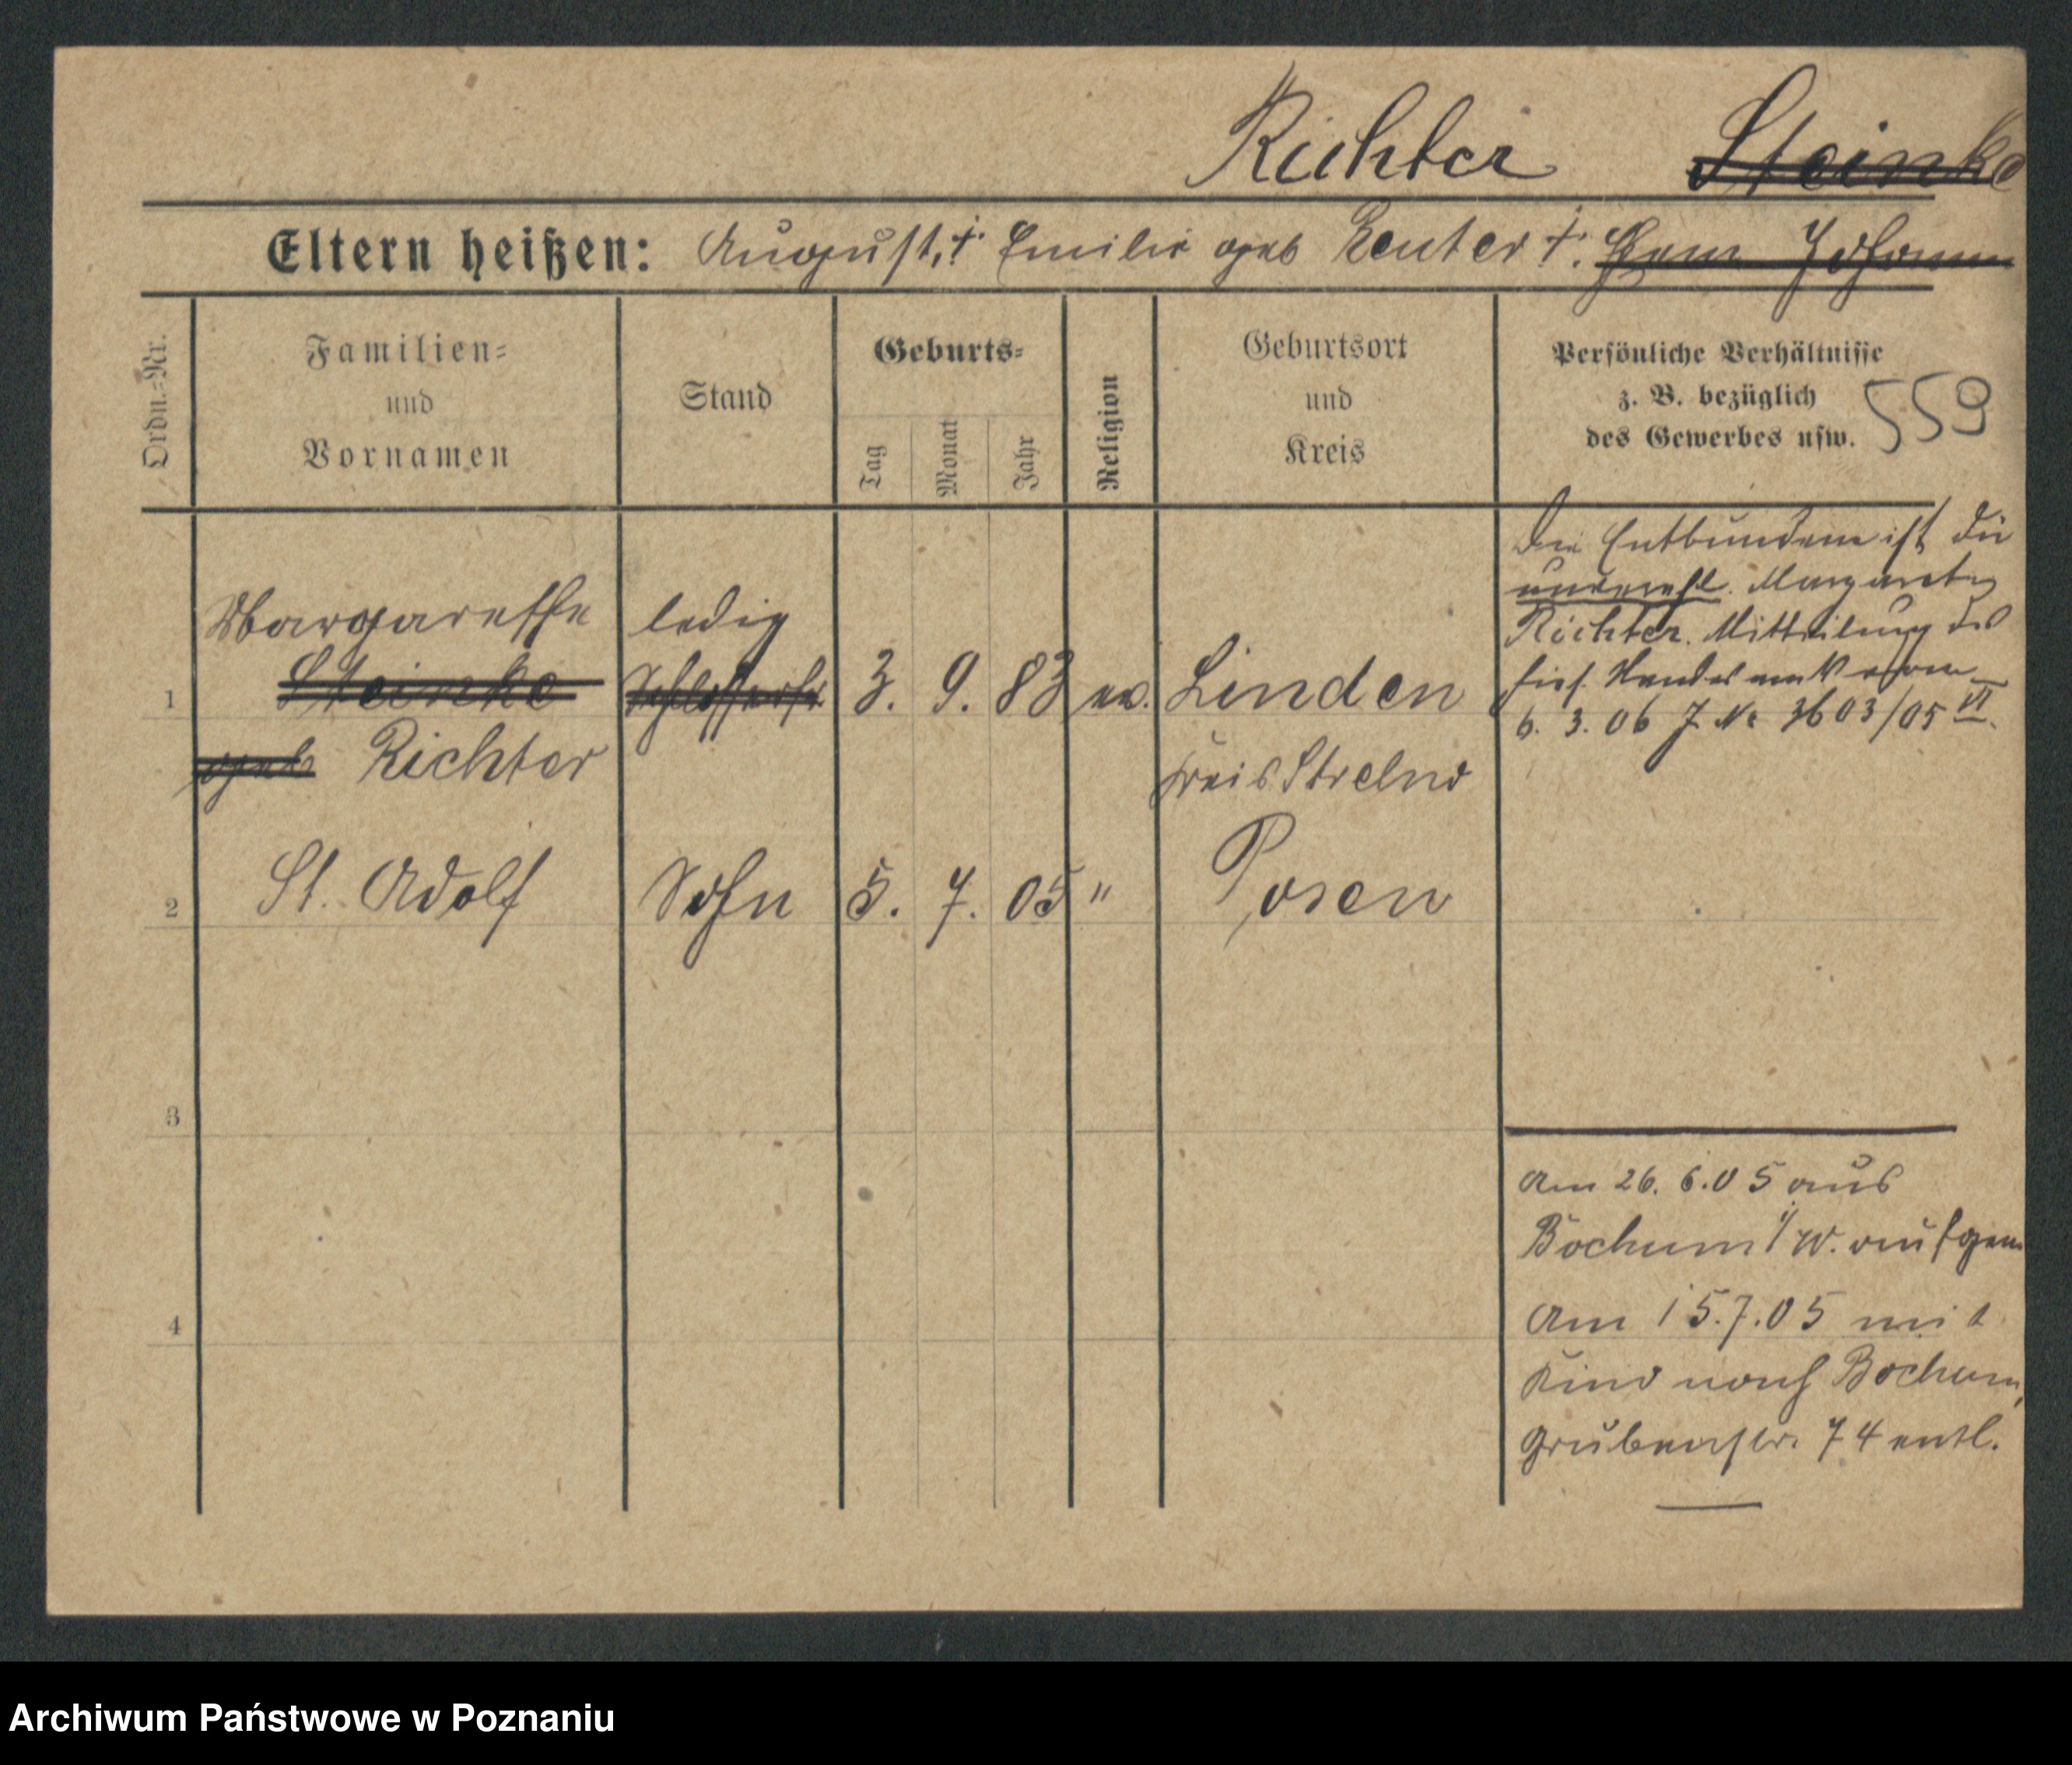 Richter Steinke
Eltern heißen: August, †. Emilie geb Reuter †. Ehem Johann
Ordn.-Nr.
Familien- und Vornamen
Stand
Geburts-
Tag
Monat
Jahr
Religion
Geburtsort und Kreis
Persönliche Verhältnisse
z. B. bezüglich
des Gewerbes usw.
559
1
Margarethe
Steinke
geb Richter
ledig
Schlosserfr
3. 9. 83 ev.
Linden
Kreis Strelno
Die Entbundene ist die
unverehl. Margarete
Richter. Mitteilung des
hies. Standesamts vom
6. 3. 06 J. № 3603/05 VI.
2
St. Adolf
Sohn
5. 7. 05 "
Posen
3
4
Am 26. 6. 05 aus
Bochum i/W. aufgen
Am 15. 7. 05 mit
Kind nach Bochum,
Grubenstr. 74 entl.
Archiwum Państwowe w Poznaniu